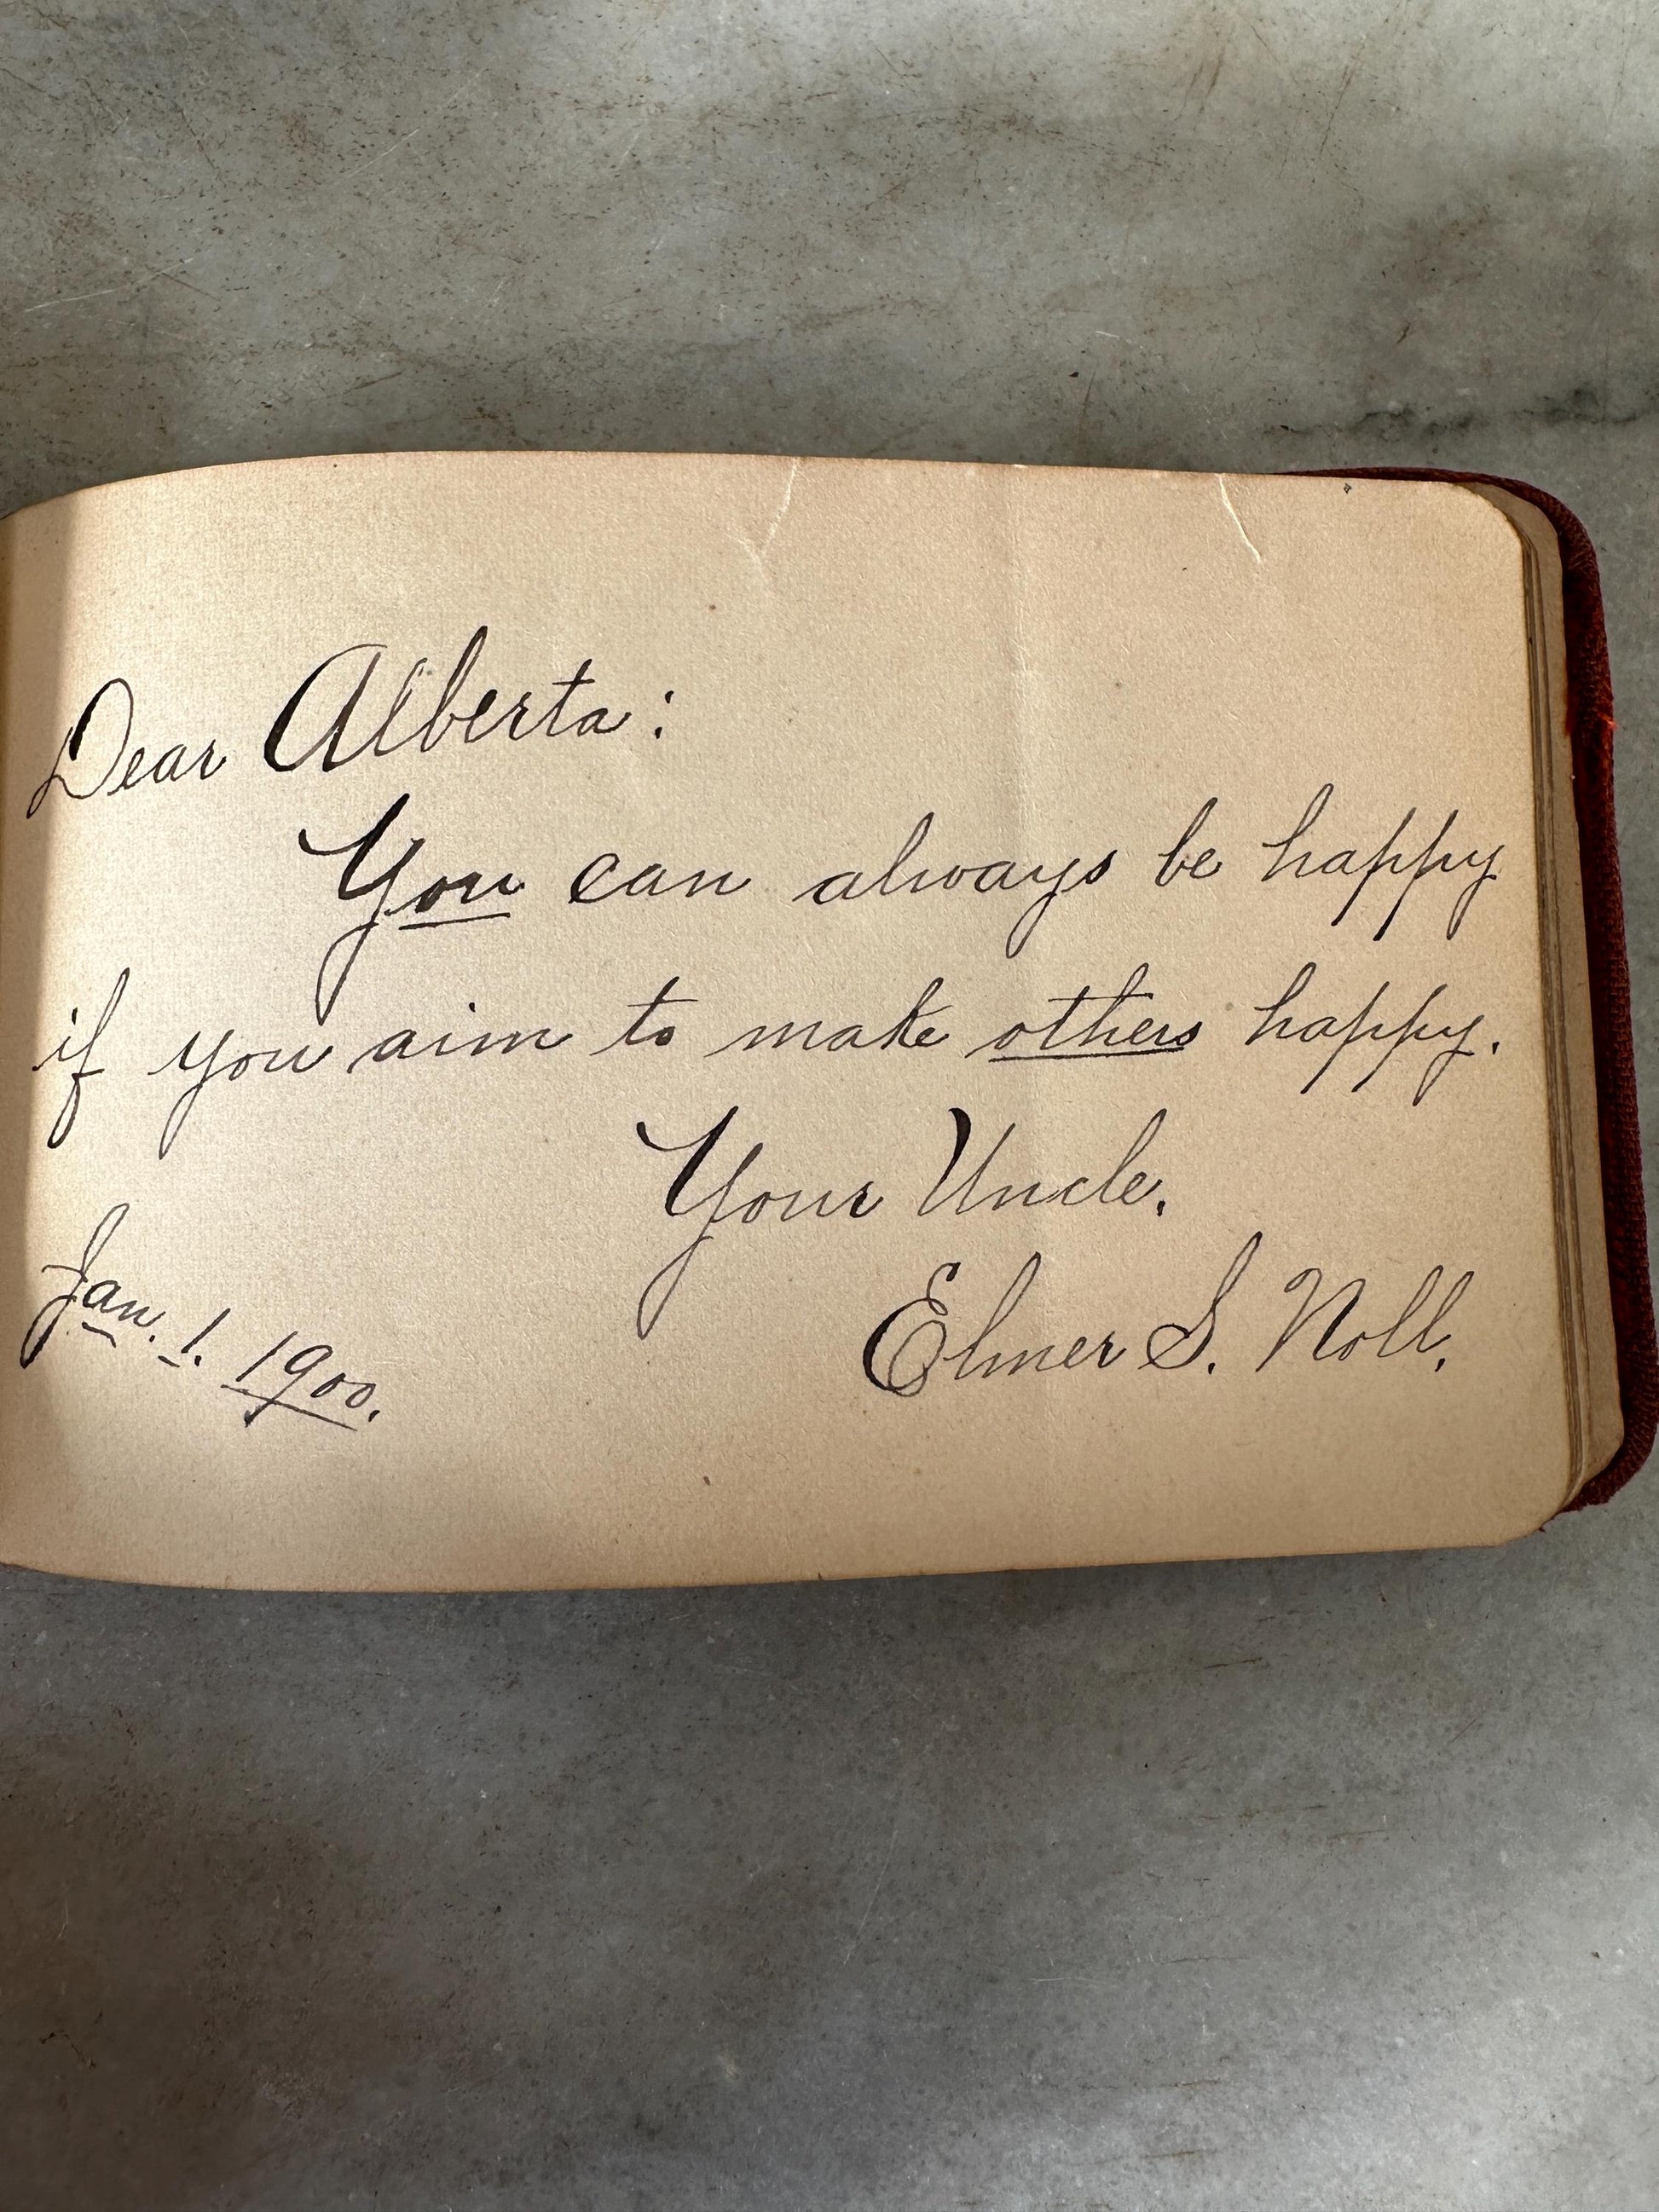 Dear Alberta:
You can always be happy
if you aim to make others happy.
Your Uncle.
Elmer S. Noll.
Jan. 1. 1900.